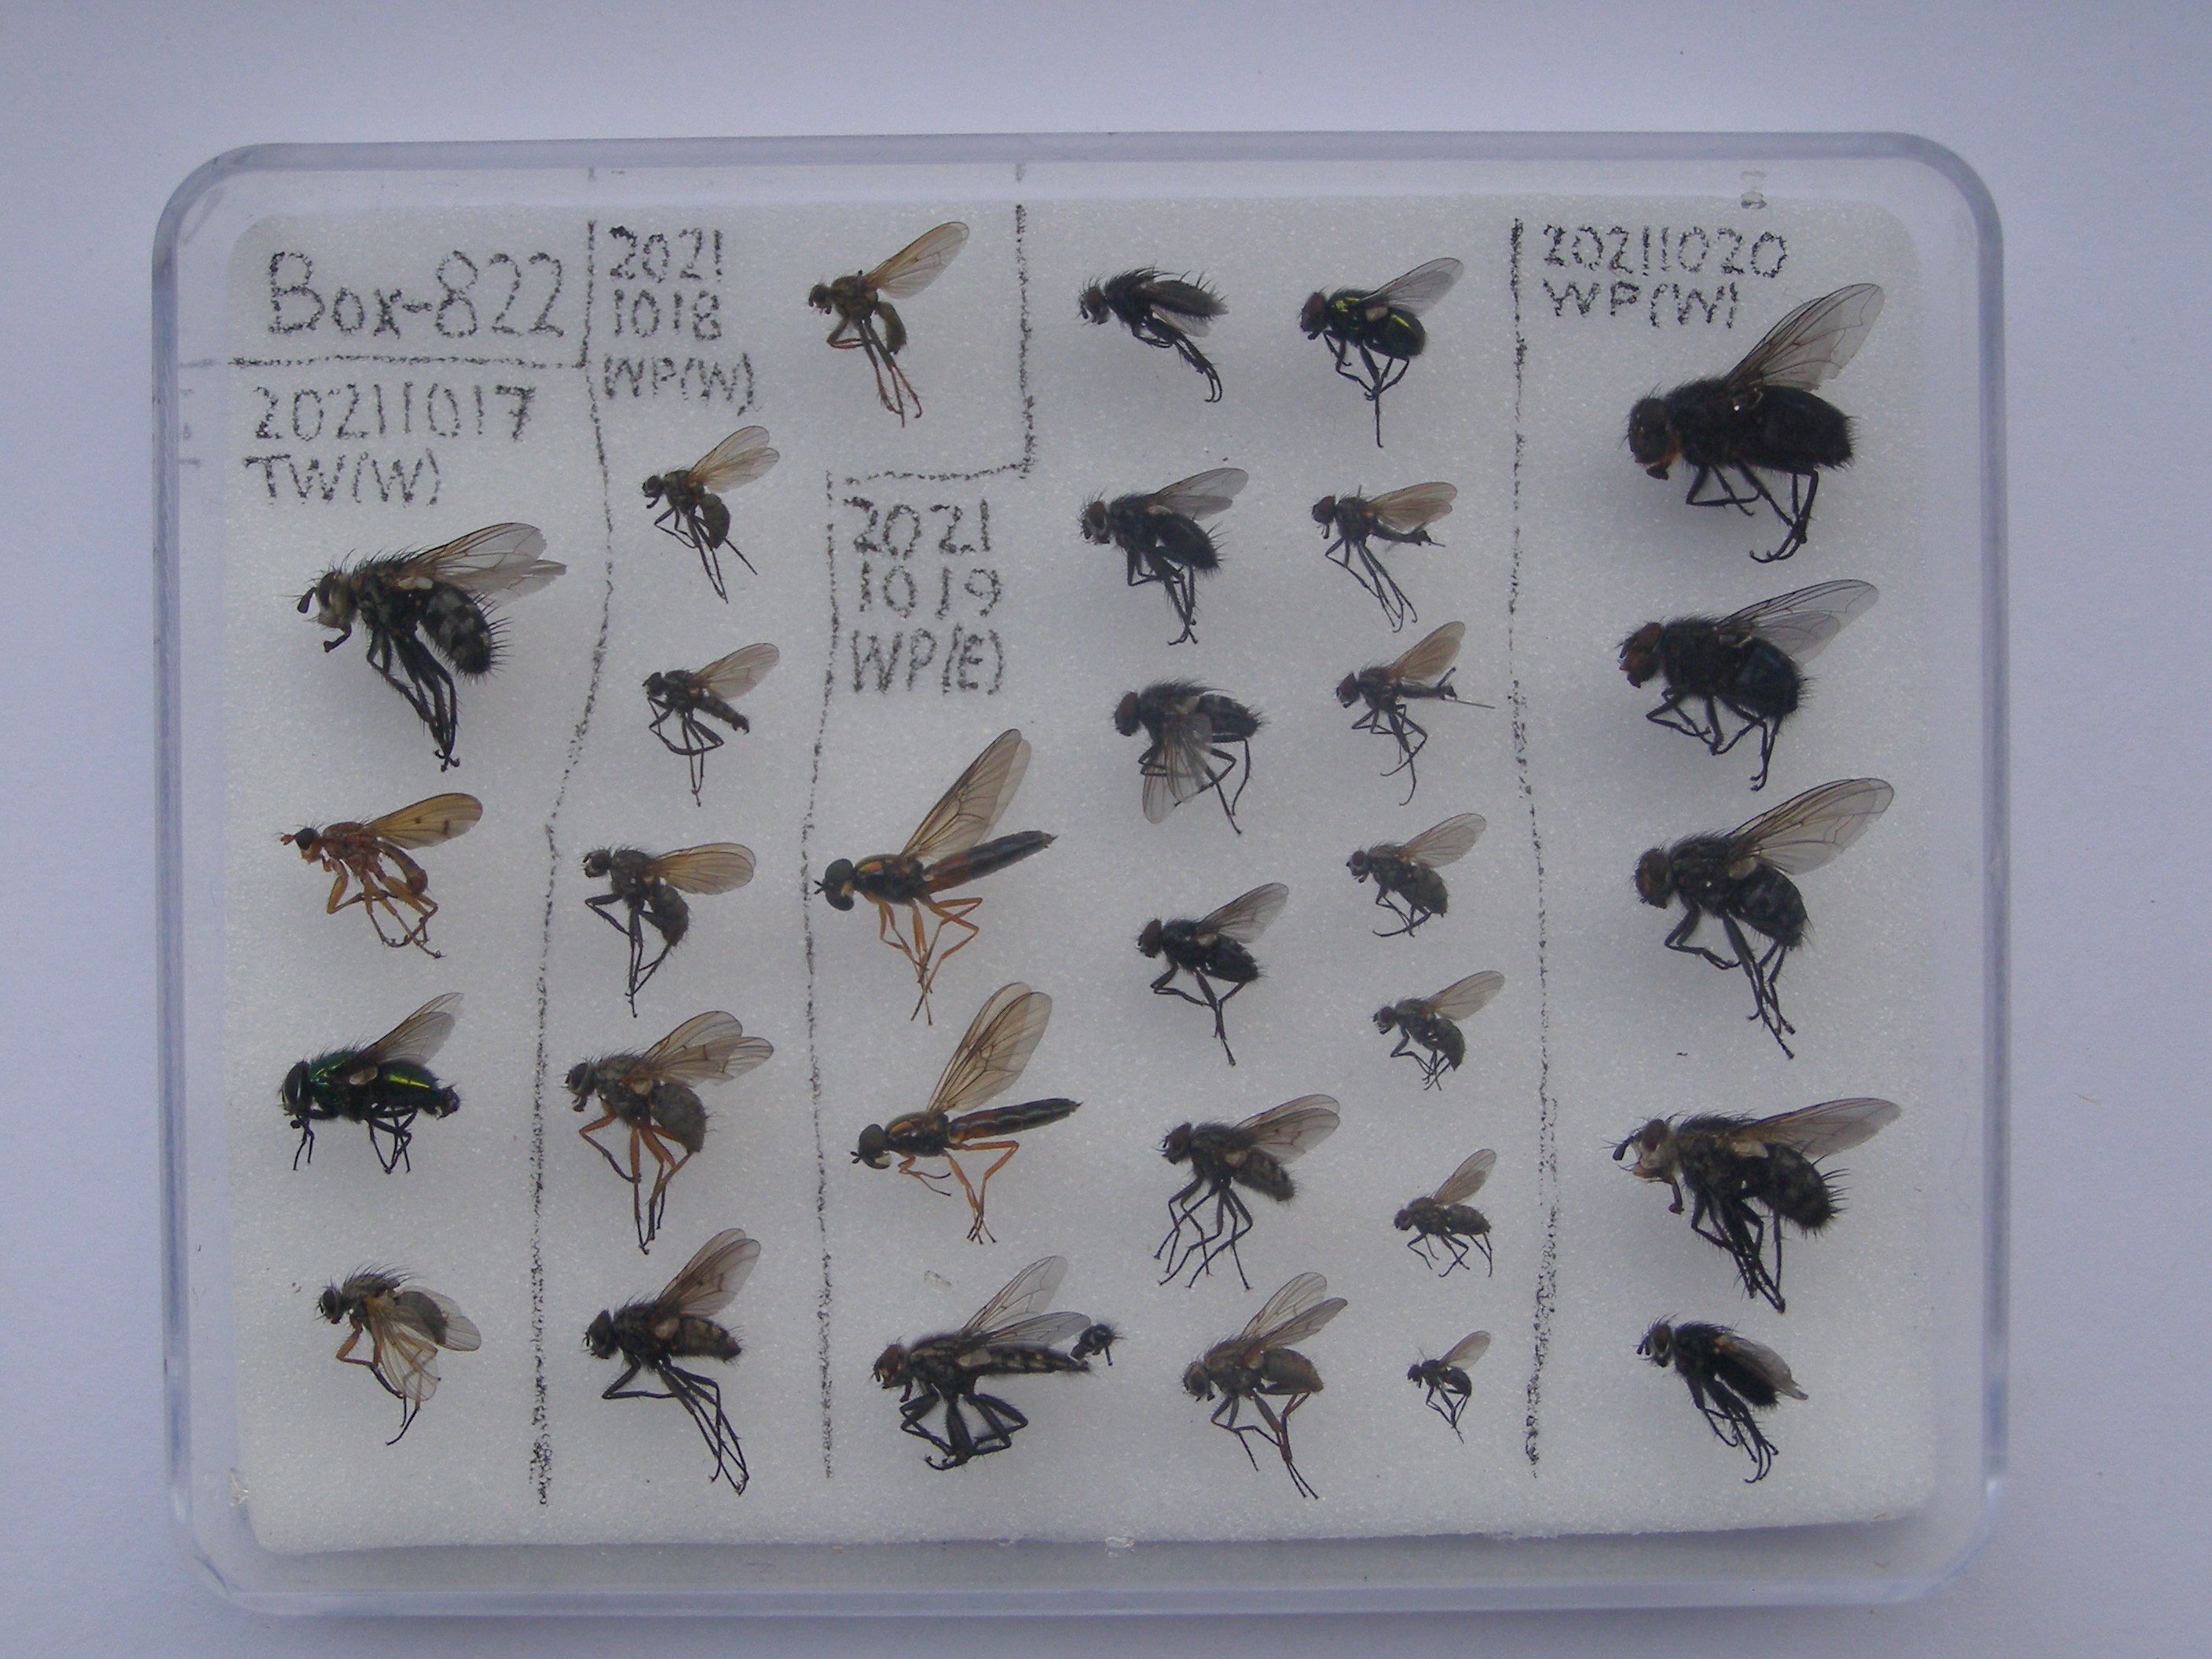 Box-822
20211017
TW(W)
2021
1018
WP(W)
2021
1019
WP(E)
20211020
WP(W)